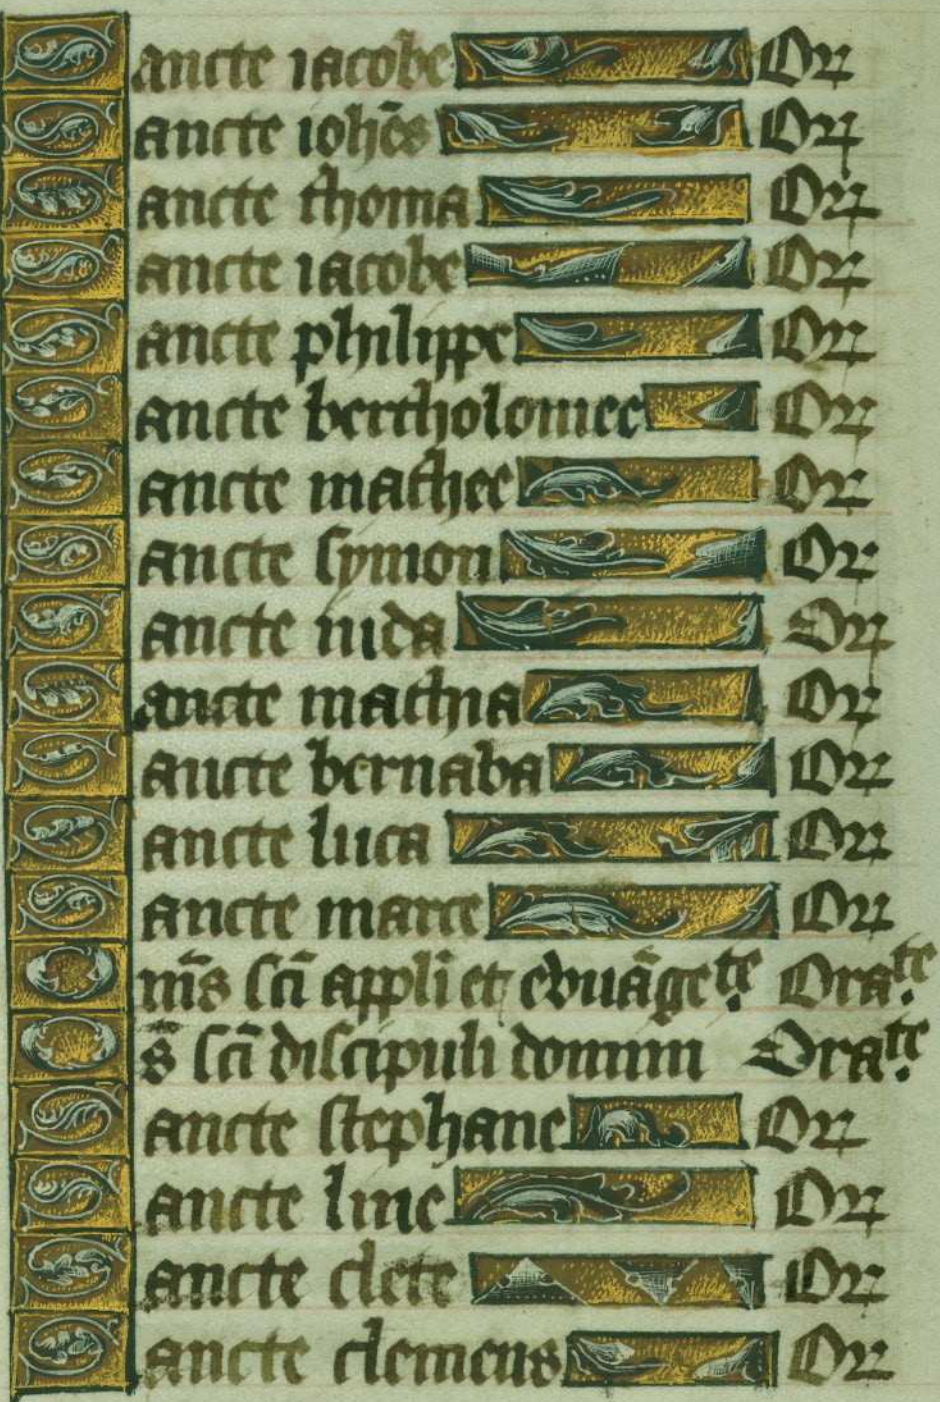 Sancte iacobe Or
Sancte iohēs Or
Sancte thoma Or
Sancte iacobe Or
Sancte philippe Or
Sancte bertholomee Or
Sancte mathee Or
Sancte symon Or
Sancte iuda Or
Sancte mathia Or
Sancte bernaba Or
Sancte luca Or
Sancte marce Or
Om̄s sc̄i appl̄i et ewuāgete Orate
Os̄ sc̄i discipuli domini Orate
Sancte stephane Or
Sancte line Or
Sancte clete Or
Sancte clemens Or